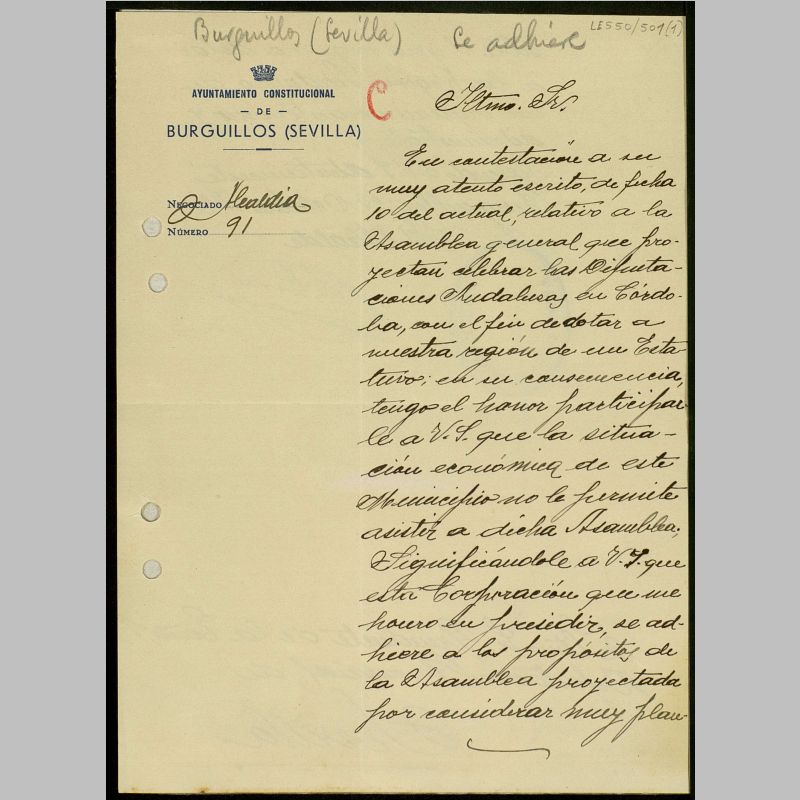 Burguillos (Sevilla) Se adhiere
LE550/501(1)
AYUNTAMIENTO CONSTITUCIONAL
— DE —
BURGUILLOS (SEVILLA)
NEGOCIADO Alcaldía
NÚMERO 91
C
Iltmo. Sr.
En contestación a su
muy atento escrito, de fecha
10 del actual, relativo a la
Asamblea general que pro-
yectan celebrar las Diputa-
ciones Andaluzas en Córdo-
ba, con el fin de dotar a
nuestra región de un Esta-
tuto; en su consecuencia,
tengo el honor participar-
le a V.S. que la situa-
ción económica de este
Municipio no le permite
asistir a dicha Asamblea;
Significándole a V.S. que
esta Corporación que me
honro en presidir, se ad-
hiere a los propósitos de
la Asamblea proyectada
por considerar muy plau-